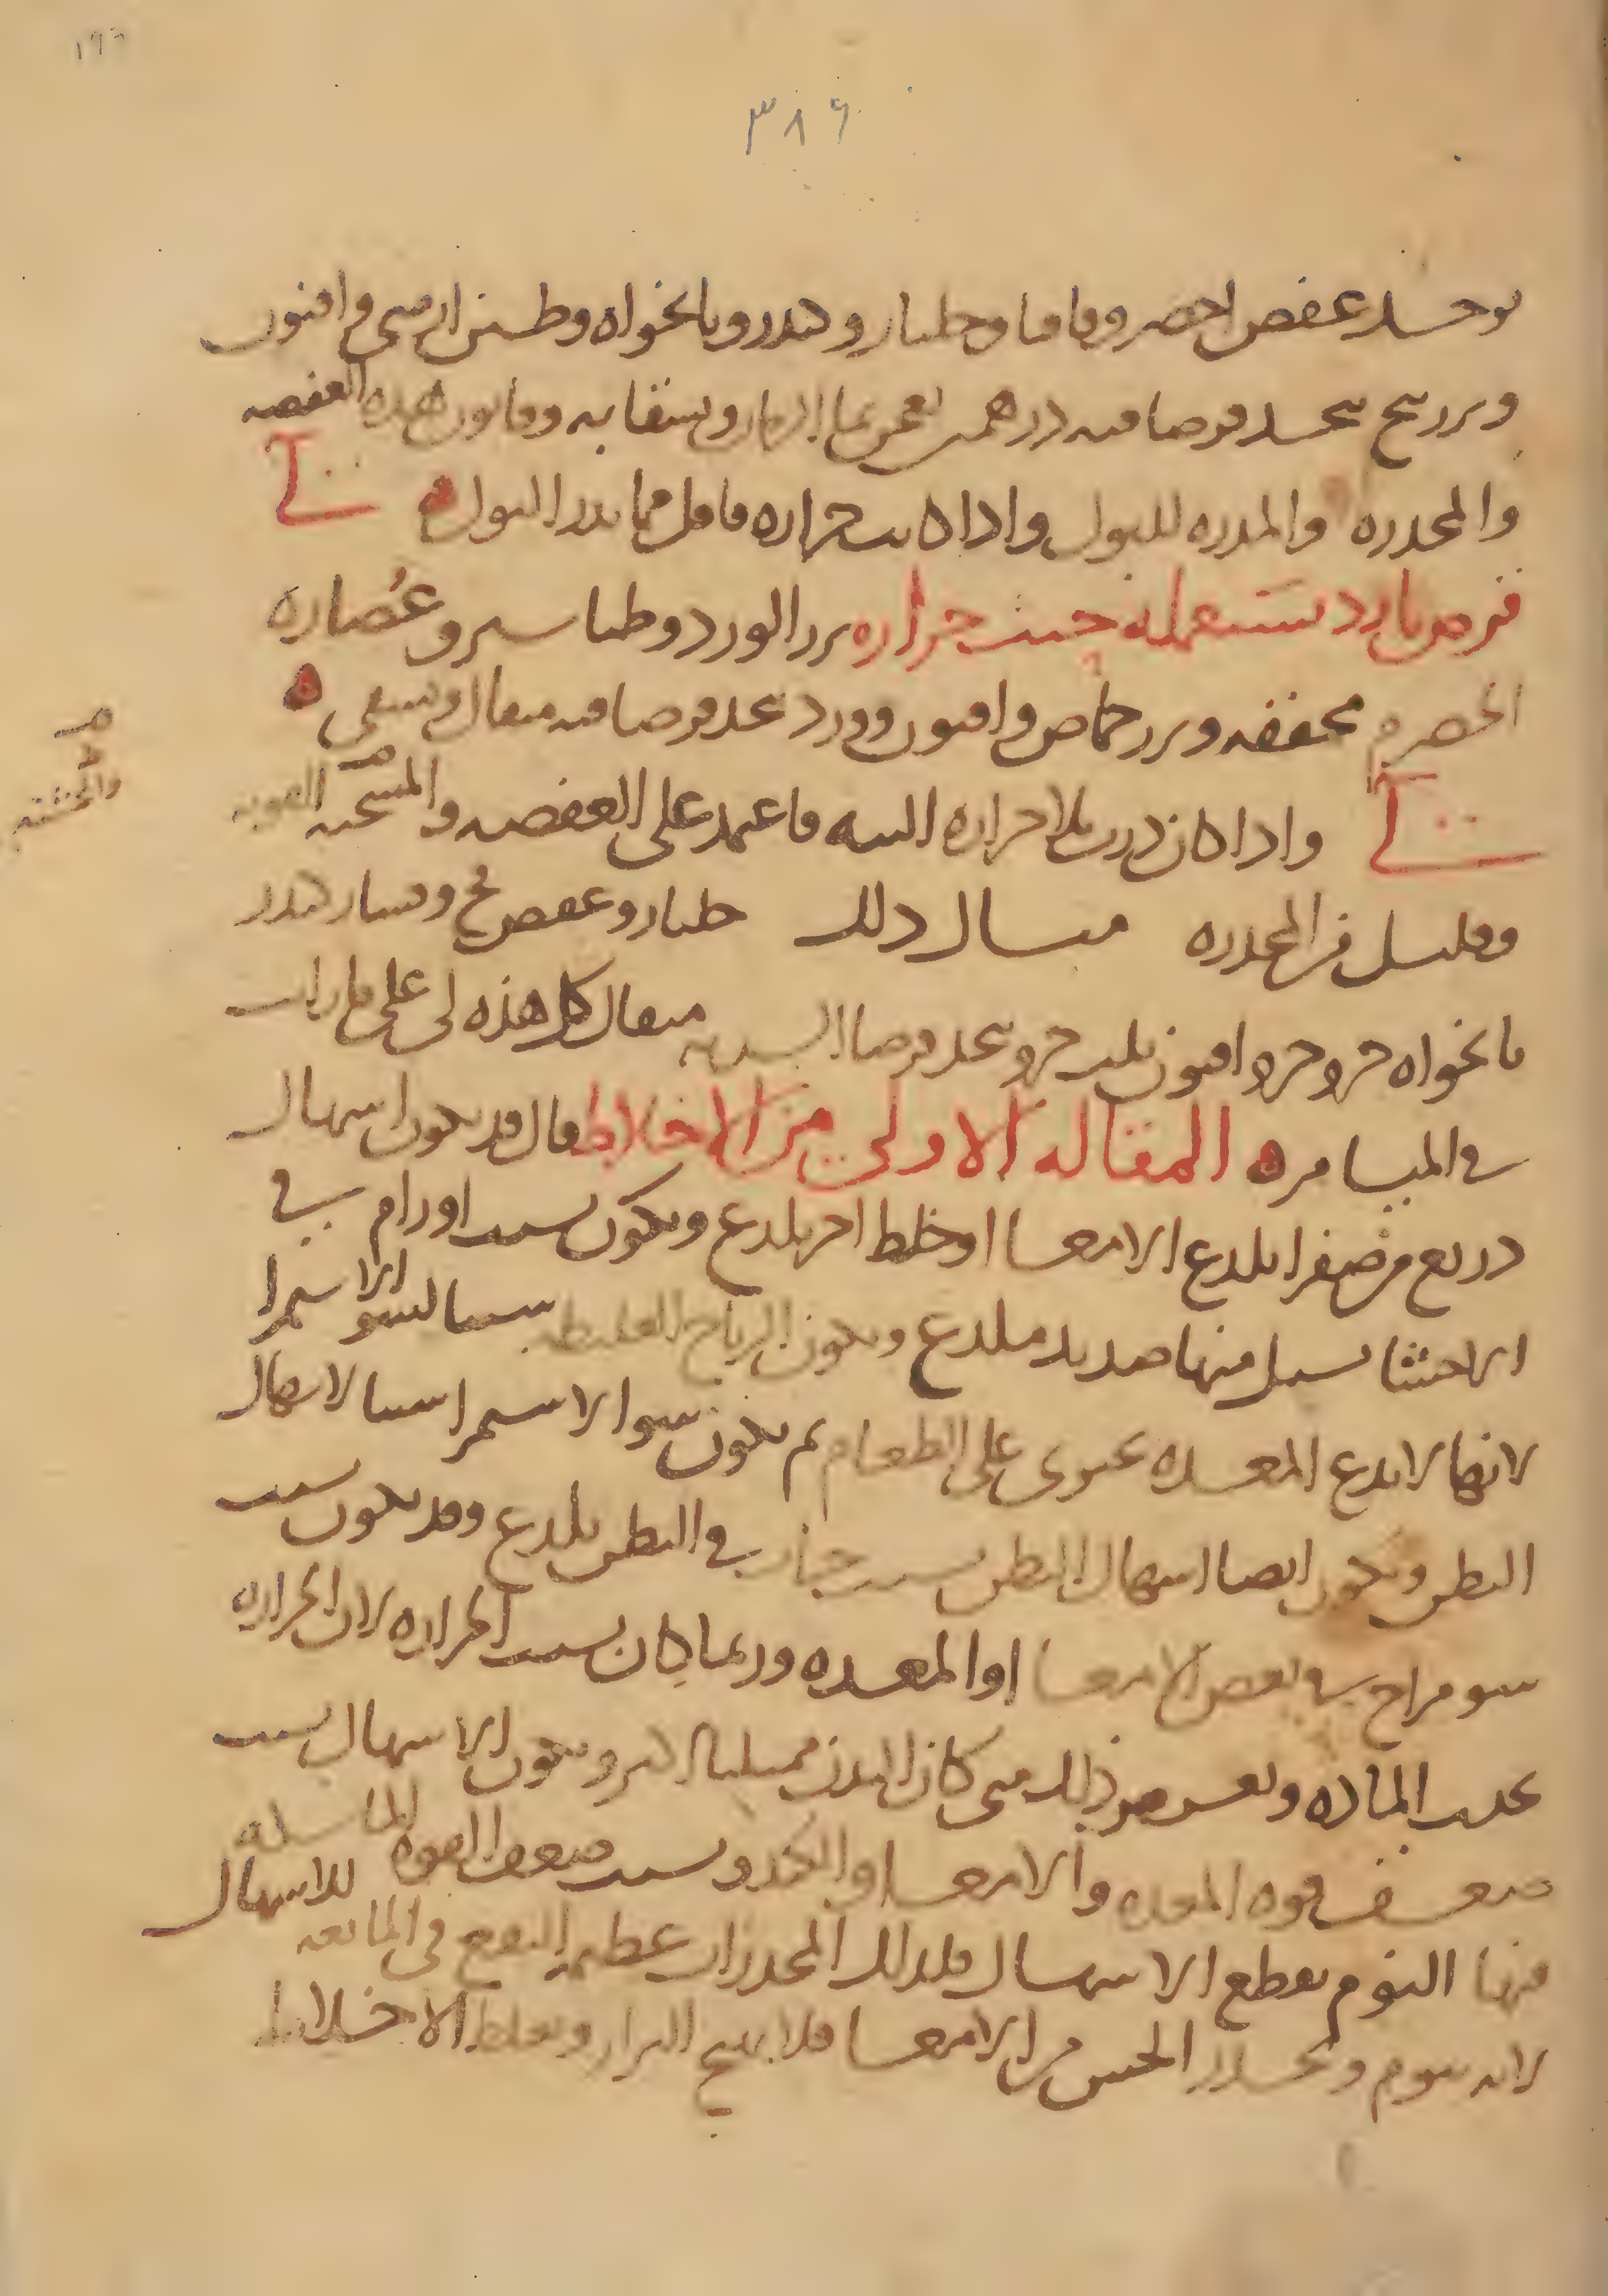 ١٩٦
٣٨٦
يوخذ عفص اخضر واقاقيا وجلنار وكندر ونانخواه وطين ارمني وافيون
وبزر بنج يتخذ قرصا فيه درهمين يعجن بماء الرمان ويسقا به وقانون هذه العفصه
والمخدره والمدره للبول واذا كانت حراره فاقل مما يدر البول
لي
قرص بارد تستعمله حيث حراره بزر الورد وطباشير وعُصاره
الحصرم مجففه وبزر حماض وافيون وورد يتخذ قرصا فيه مثقال ويسقى
لي واذا كان ذرب بلا حراره البته فاعتمد على العفصه والمسخنه القويه
وقليل من المخدره مثال ذلك جلنار وعفص فج وقشار كندر
نانخواه جزو جزو افيون ثلث جزو يتخذ قرصا الشربه مثقال كل هذه لي على ما رايت
في الميامر المقاله الاولى من الاخلاط قال قد يكون اسهال
ذريع من صفرا يلدع الامعا او خلط اخر يلدع ويكون بسبب اورام في
الاحشا يسيل منها صديد يلدع ويكون الرياح الغليظه سببا لسو الاستمرا
لانها لا تدع المعده تحتوى على الطعام ثم يكون سوا الاستمرا سببا لاسهال
البطن ويكون ايضا اسهال البطن بسبب في البطن يلدع وقد يكون بسبب
سو مزاج في بعض الامعا او المعده وربما كان بسبب الحراره لان الحراره
تجذب الماده ويعرض ذلك متى كان البدن ممتليا اكثر ويكون الاسهال بسبب
ضعف قوه المعده والامعا والكبد وبسبب ضعف القوه الماسكه
منها النوم يقطع الاسهال فلذلك المخدرات عظيم النفع في المانعه للاسهال
لانه ينوم ويخدر الحس من الامعا فلا يهيج البراز ويغلظ الاخلاط